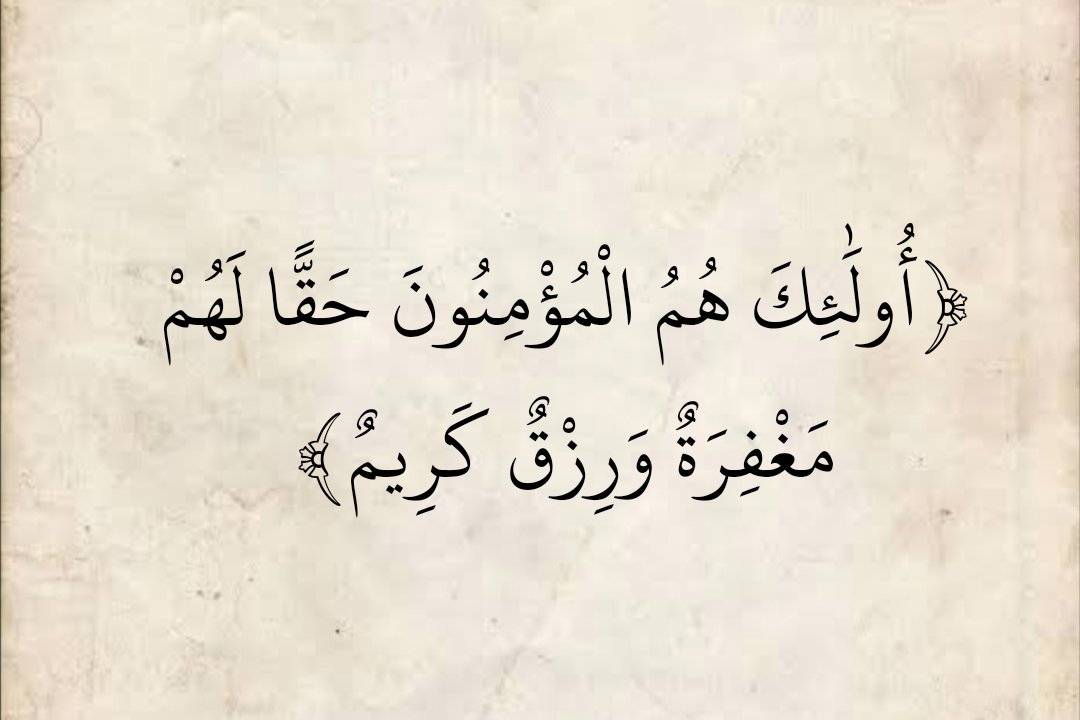 ﴿أُولَٰئِكَ هُمُ الْمُؤْمِنُونَ حَقًّا لَهُمْ
مَغْفِرَةٌ وَرِزْقٌ كَرِيمٌ﴾